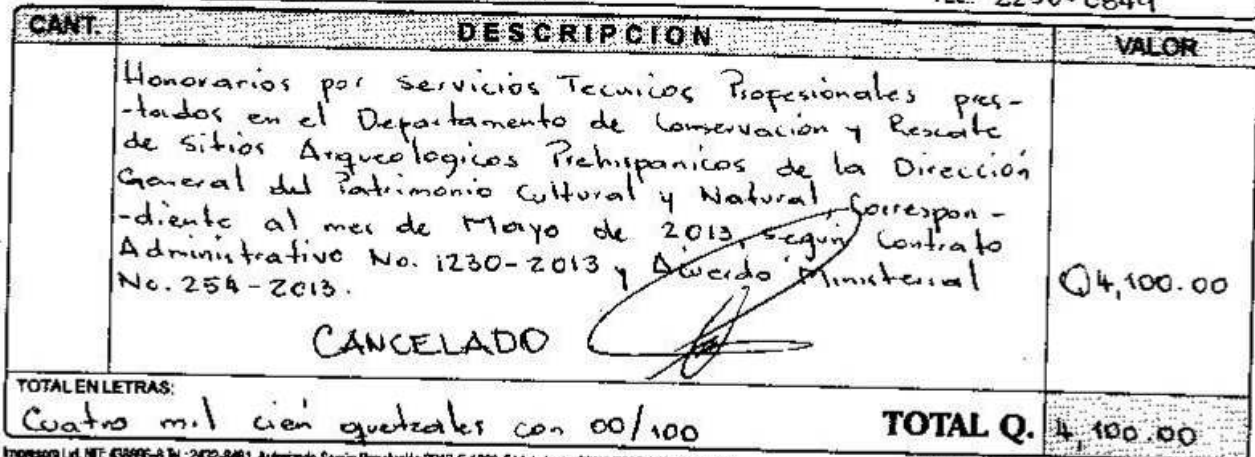 2230-0849
CANT. DESCRIPCION VALOR
Honorarios por servicios Tecnicos Profesionales pres-
-tados en el Departamento de Conservación y Rescate
de Sitios Arqueologicos Prehispanicos de la Dirección
General del Patrimonio Cultural y Natural, Correspon-
-diente al mes de Mayo de 2013, según Contrato
Administrativo No. 1230-2013 y Acuerdo Ministerial
No. 254-2013. Q4,100.00
CANCELADO
TOTAL EN LETRAS:
Cuatro mil cién quetzales con 00/100 TOTAL Q. 4,100.00